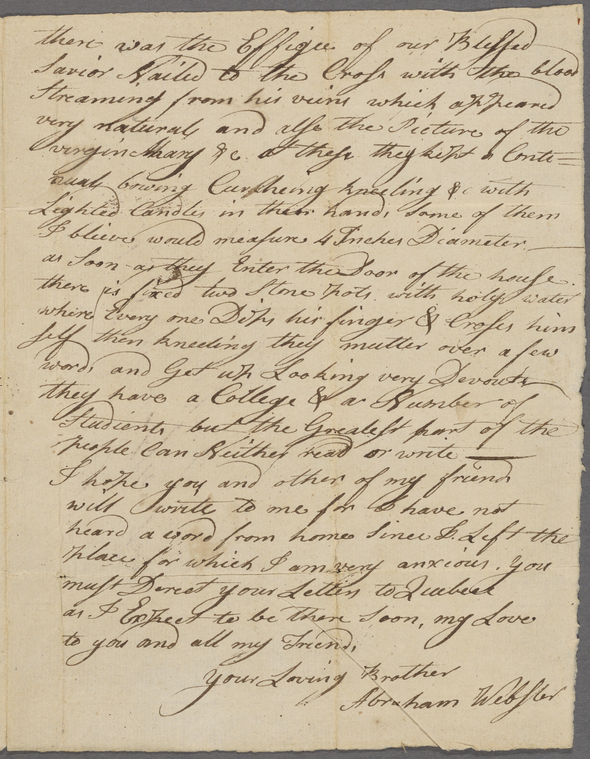 there was the Effigee of our Blessed
Savior Nailed to the Cross with the blood
Streaming from his veins which appeared
very natural, and also the Picture of the
virgin Mary &c. a these they kept a Conti=
nual bowing Curtheing kneeling &c with
Lighted Candles in their hands Some of them
I blieve would measure 4 Inches Diameter
as Soon as they Enter the Door of the house.
there is fixed two Stone pots with holy water
where Every one Dips his finger & Cross him
self then kneeling they mutter over a few
words and Get up Looking very Devout
they have a College & a Number of
Students but the Greatest part of the
people Can Neither read or write
I hope you and other of my friends
will write to me for I have not
heard a word from home Since I Left the
place for which I am very anxious. you
must Derect your Letters to Quebeck
as I Expect to be there Soon, my Love
to you and all my Friends
your Loving Brother
Abraham Webster